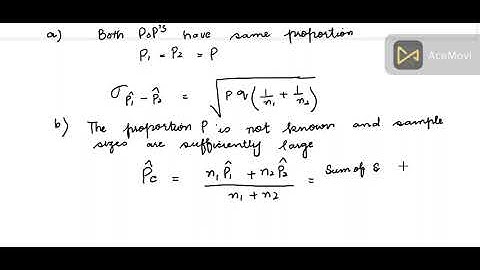 a) Both POP'S have same proportion
P₁ = P₂ = P
AceMovi
σ_{P̂₁ - P̂₂} = √(pq(1/n₁ + 1/n₂))
b) The proportion P is not known and sample
sizes are sufficiently large
P̂c = (n₁P̂₁ + n₂P̂₂)/(n₁ + n₂) = Sum of S +